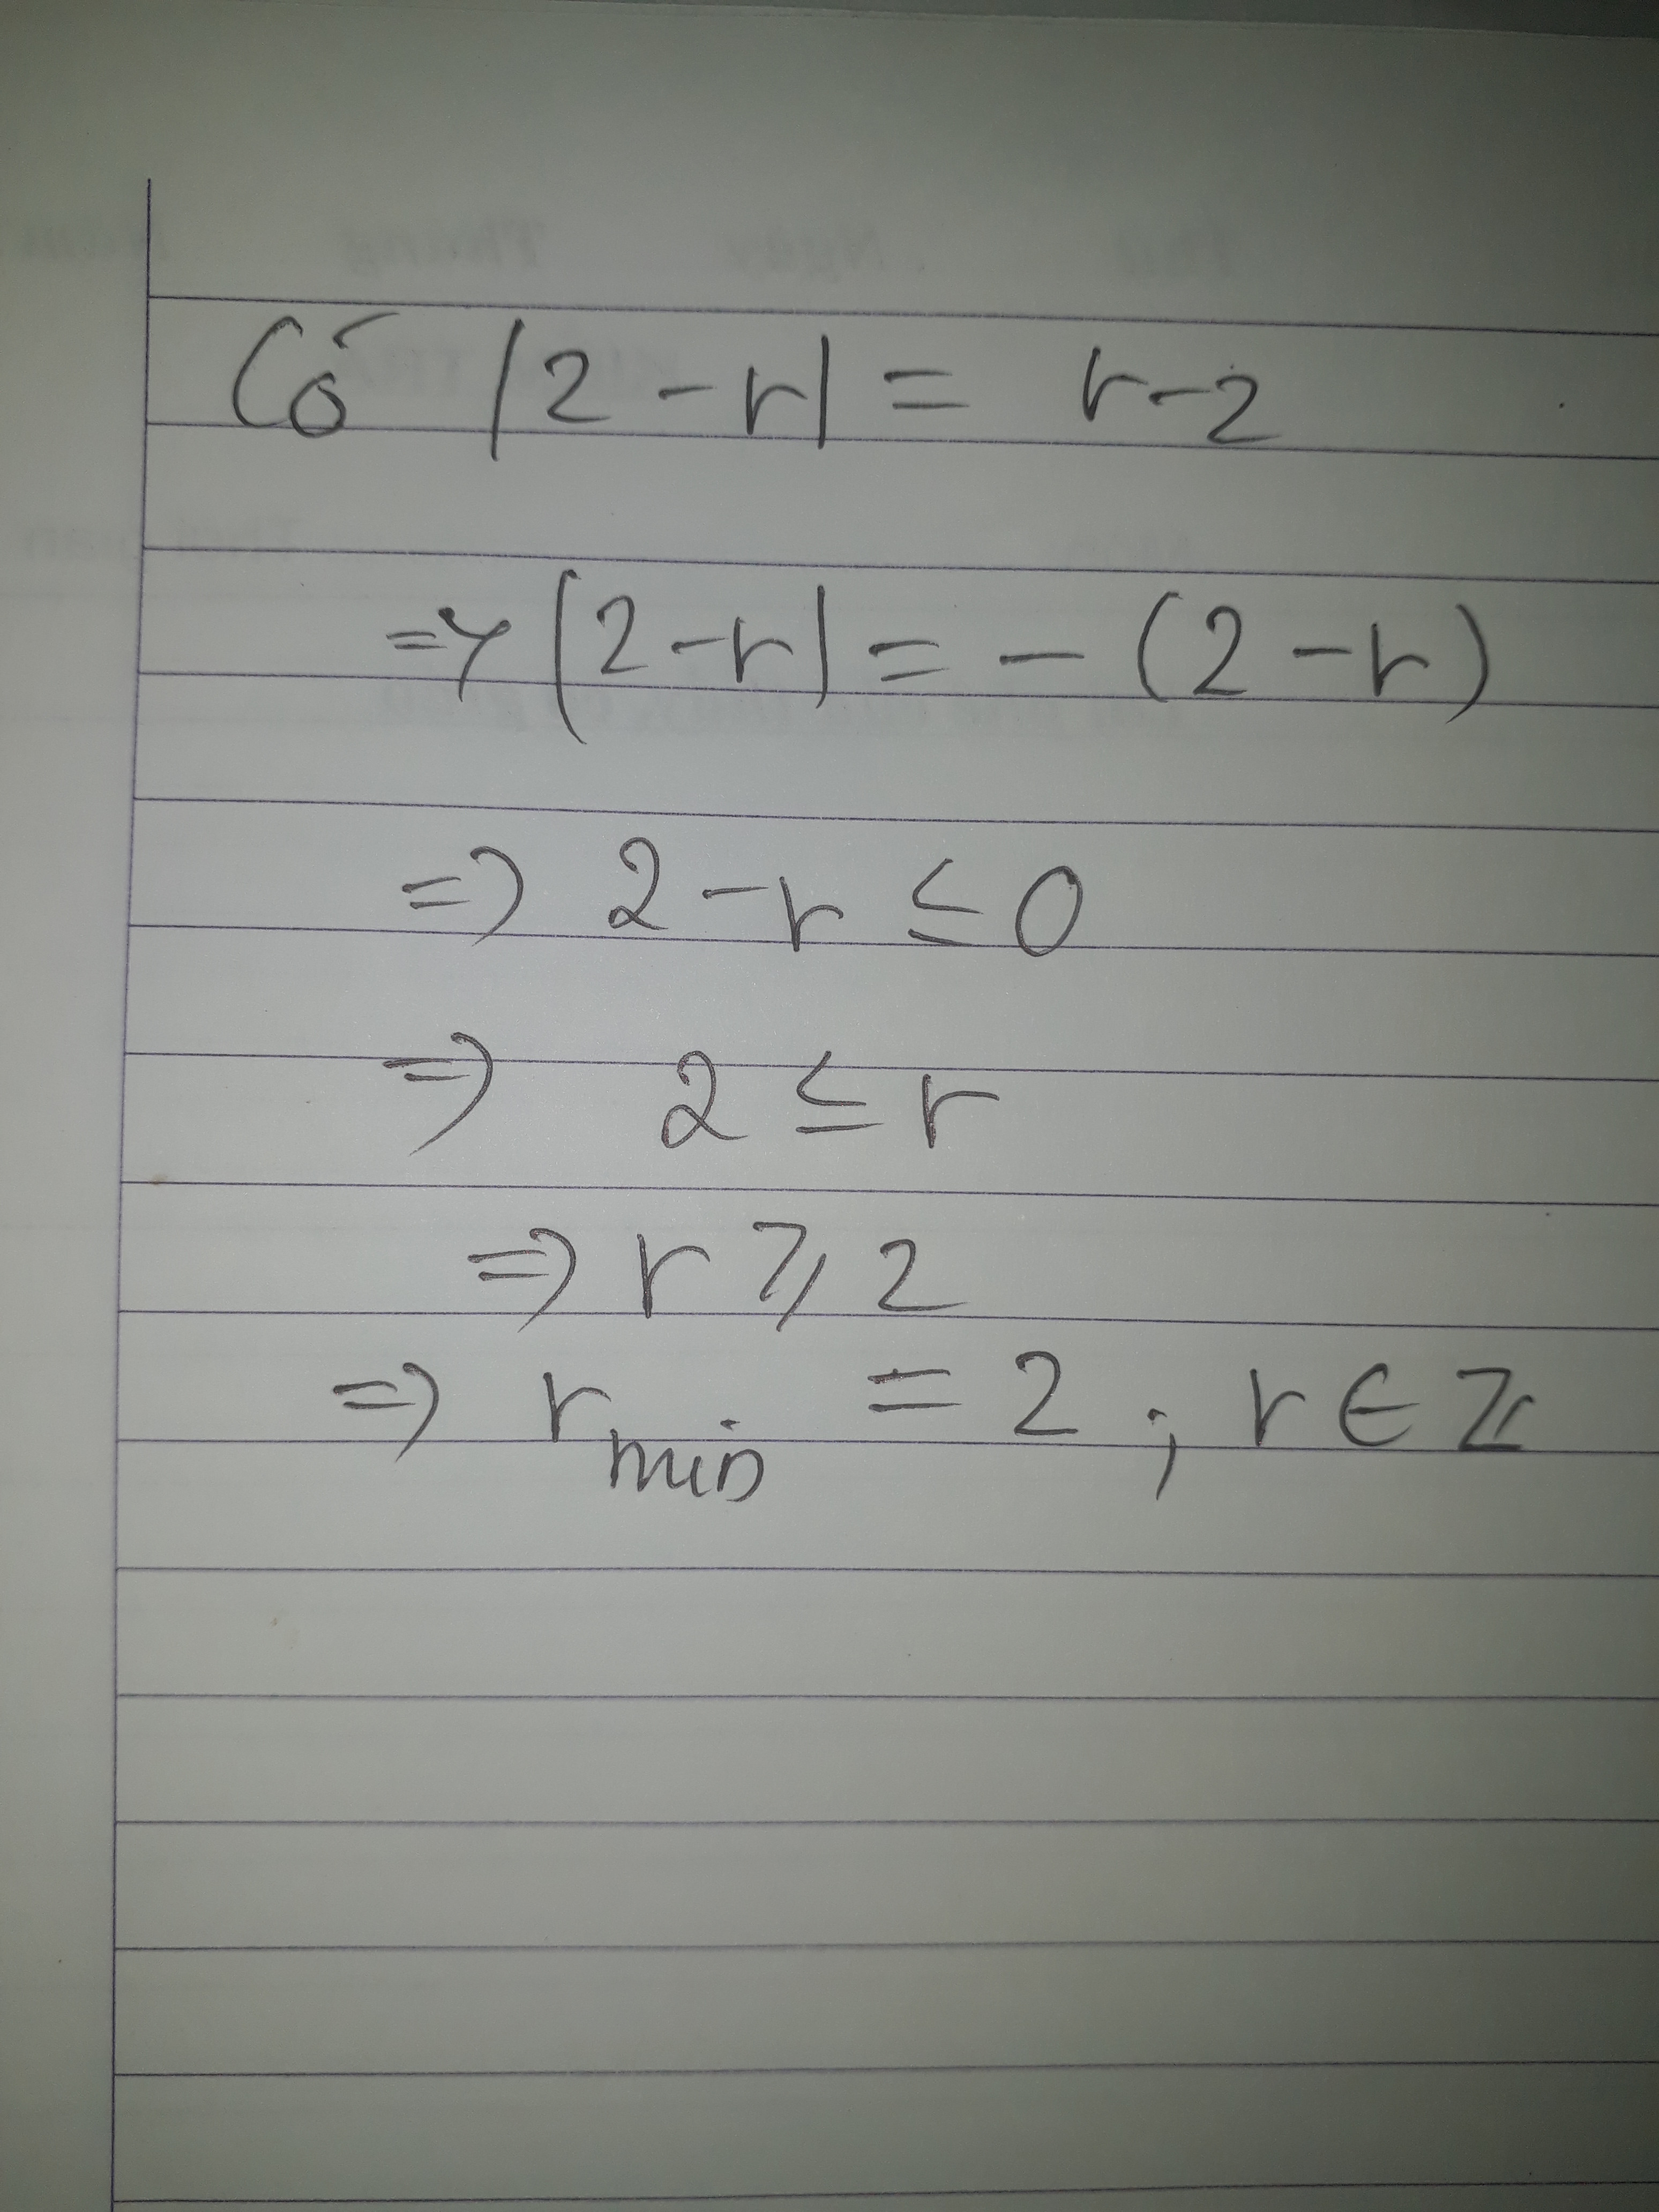 Có |2-r| = r-2
=> |2-r| = -(2-r)
=> 2-r ≤ 0
=> 2 ≤ r
=> r ⩾ 2
=> r_min = 2 ; r ∈ ℤ